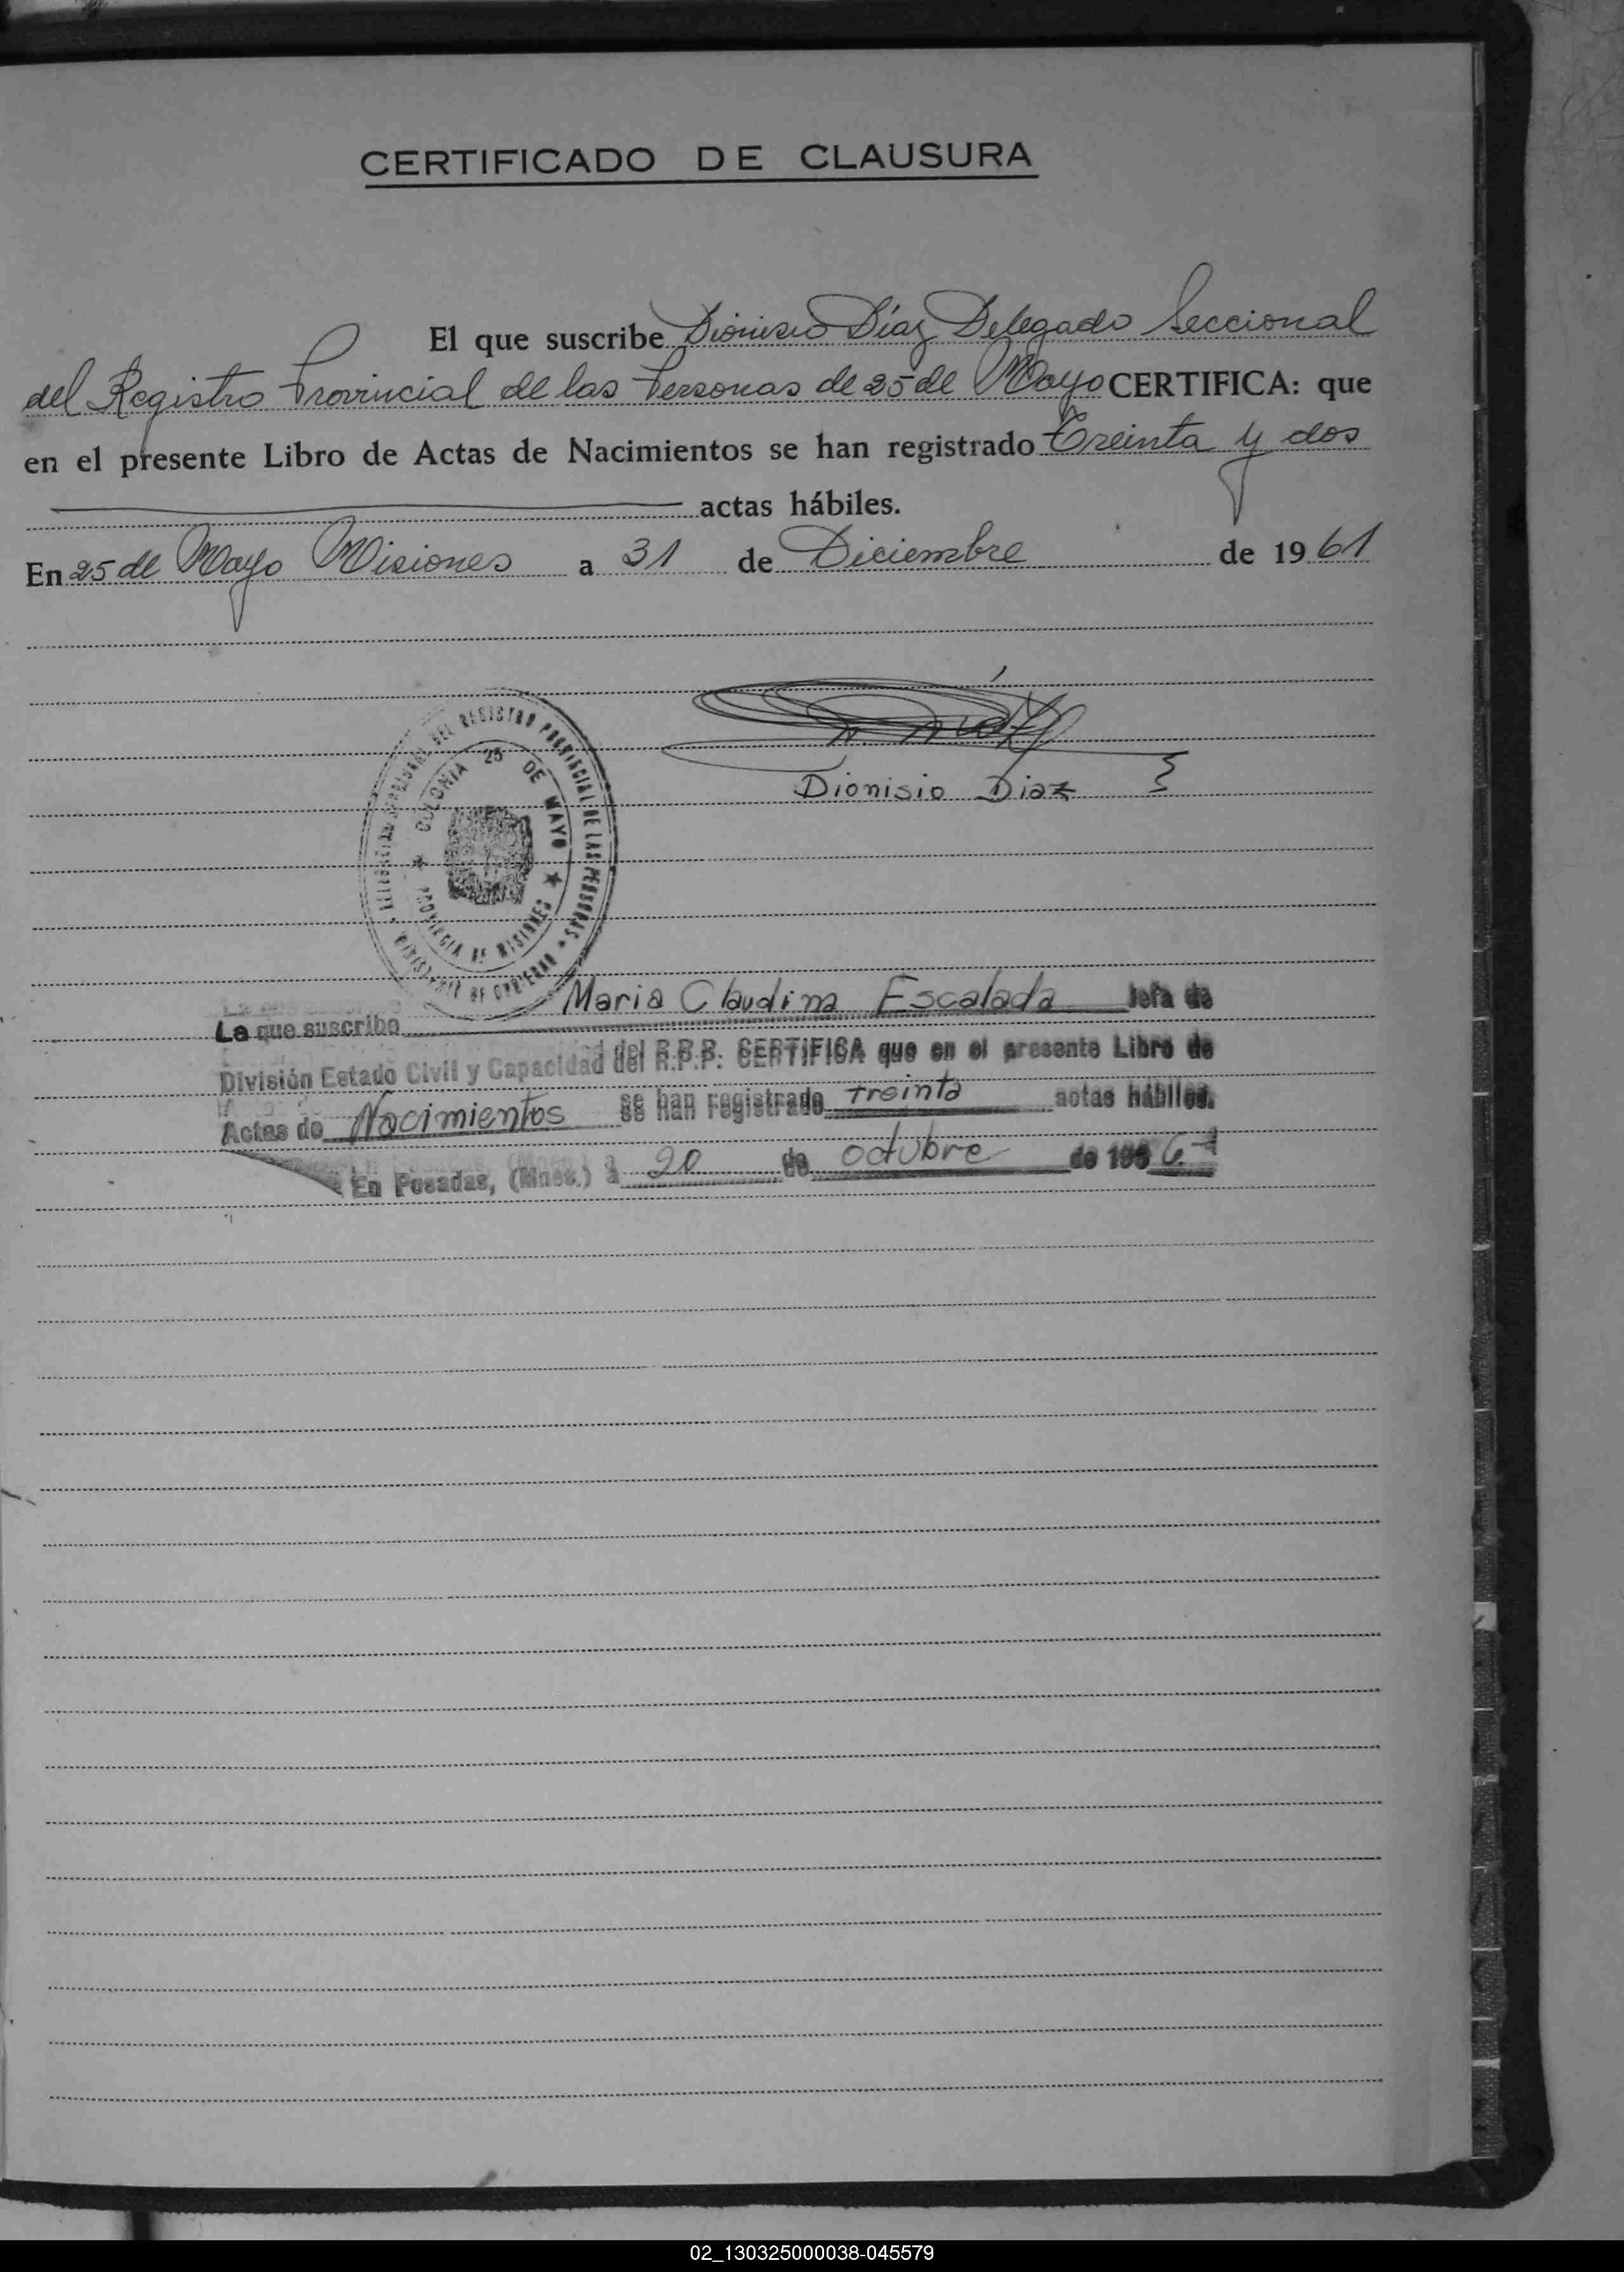 CERTIFICADO DE CLAUSURA
El que suscribe Dionisio Díaz Delegado Seccional
del Registro Provincial de las Personas de 25 de Mayo CERTIFICA: que
en el presente Libro de Actas de Nacimientos se han registrado Treinta y dos
actas hábiles.
En 25 de Mayo Misiones a 31 de Diciembre de 1961
Dionisio Diaz
DEL REGISTRO PROVINCIAL DE LAS PERSONAS
MINISTERIO DE GOBIERNO
COLONIA 25 DE MAYO
PROVINCIA DE MISIONES
La que suscribe Maria Claudina Escalada Jefa de
División Estado Civil y Capacidad del R.P.P. CERTIFICA que en el presente Libro de
Actas de Nacimientos se han registrado treinta actas hábiles.
En Posadas, (Mnes.) a 20 de octubre de
02_130325000038-045579